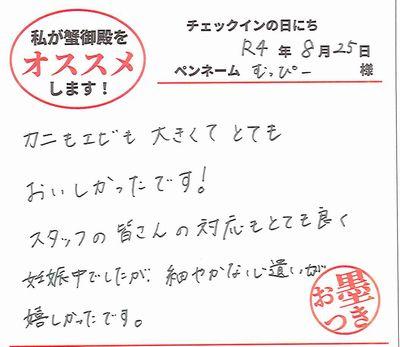 私が蟹御殿を
オススメ
します！
チェックインの日にち
R4年8月25日
ペンネーム むっぴー 様
カニもエビも大きくてとても
おいしかったです！
スタッフの皆さんの対応もとても良く
妊娠中でしたが、細やかな心遣いが
嬉しかったです。
お墨つき